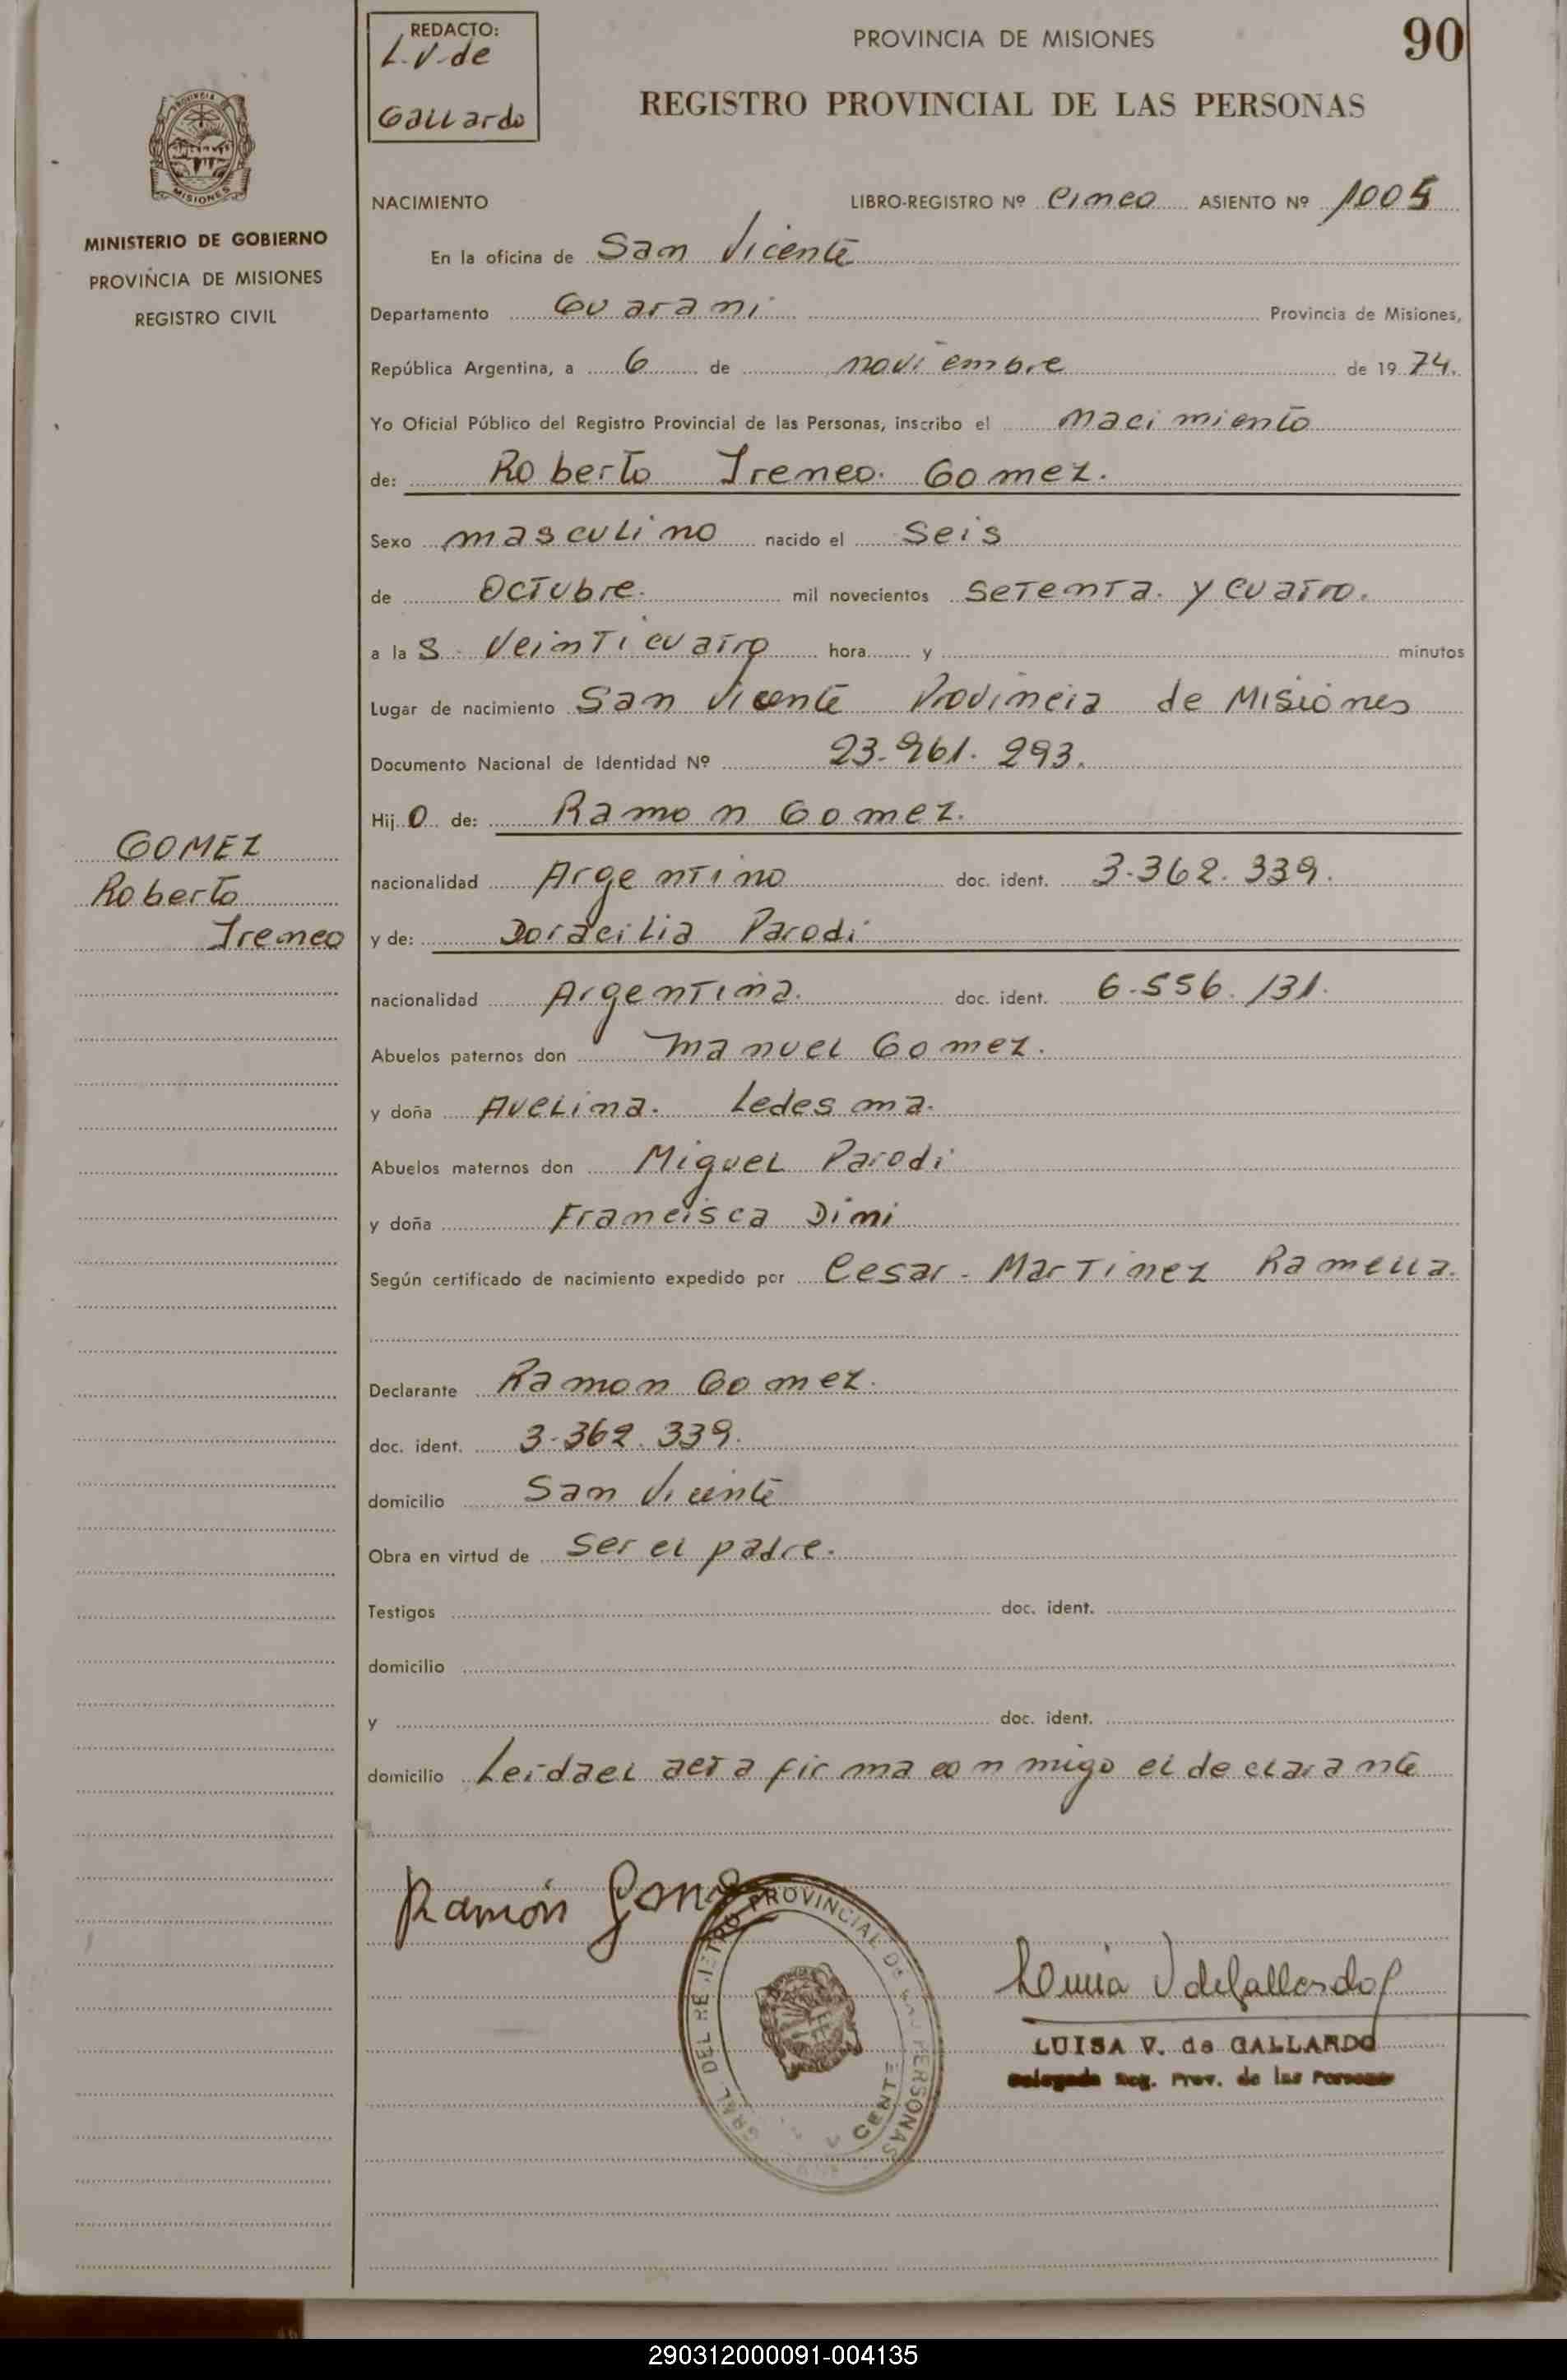 REDACTO:
L.V. de
Gallardo
PROVINCIA DE MISIONES
90
REGISTRO PROVINCIAL DE LAS PERSONAS
PROVINCIA
MISIONES
MINISTERIO DE GOBIERNO
PROVINCIA DE MISIONES
REGISTRO CIVIL
NACIMIENTO LIBRO-REGISTRO Nº Cinco ASIENTO Nº 1005
En la oficina de San Vicente
Departamento Guarani Provincia de Misiones,
República Argentina, a 6 de noviembre de 19 74.
Yo Oficial Público del Registro Provincial de las Personas, inscribo el nacimiento
de: Roberto Ireneo Gomez.
Sexo masculino nacido el Seis
de Octubre. mil novecientos Setenta y cuatro.
a la s Veinticuatro hora y minutos
Lugar de nacimiento San Vicente Provincia de Misiones
Documento Nacional de Identidad Nº 23.961.293.
Hij o de: Ramon Gomez.
nacionalidad Argentino doc. ident. 3.362.339.
y de: Doracilia Parodi
nacionalidad Argentina. doc. ident. 6.556.131.
Abuelos paternos don Manuel Gomez.
y doña Avelina. Ledesma.
Abuelos maternos don Miguel Parodi
y doña Francisca Dini
Según certificado de nacimiento expedido por Cesar - Martinez Ramella.
Declarante Ramon Gomez.
doc. ident. 3.362.339.
domicilio San Vicente
Obra en virtud de Ser el padre.
Testigos doc. ident.
domicilio
y doc. ident.
domicilio Leidael acta firma conmigo el declarante
GOMEZ
Roberto
Ireneo
Ramón Gomez
PROVINCIAL DE LAS PERSONAS
GRAL DEL REGISTRO
CENTE
LUISA V. de GALLARDO
Delegada Reg. Prov. de las Personas
290312000091-004135